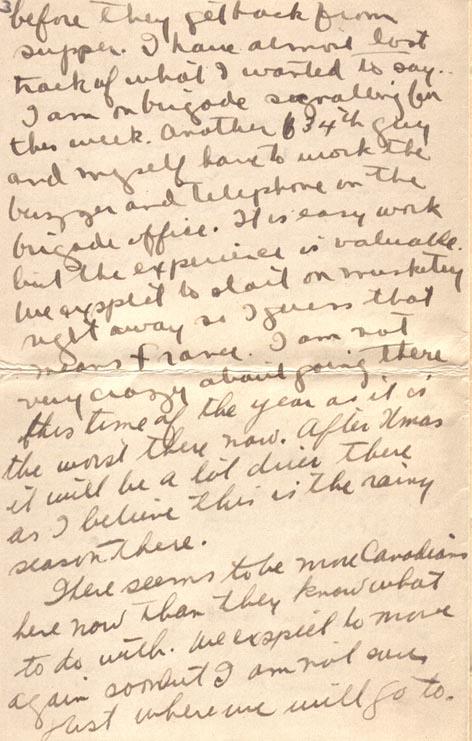 3
before they get back from
supper. I have almost lost
track of what I wanted to say.
I am on brigade signalling for
this week. Another 134th guy
and myself have to work the
buzzer and telephone in the
brigade office. It is easy work
but the experience is valuable.
We exspect to start on musketry
right away so I guess that
means France. I am not
very crazy about going there
this time of the year as it is
the worst there now. After Xmas
it will be a lot drier there
as I believe this is the rainy
season there.
There seems to be more Canadians
here now than they know what
to do with. We exspect to move
again soon but I am not sure
just where we will go to.